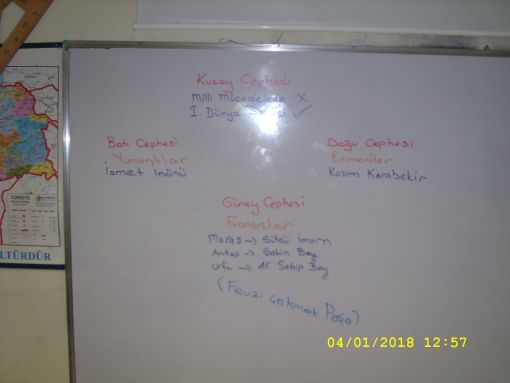 Kuzey Cephesi
Milli Mücadelede X
I. Dünya ✓
Batı Cephesi
Yunanlılar
İsmet İnönü
Doğu Cephesi
Ermeniler
Kazım Karabekir
Güney Cephesi
Fransızlar
Maraş → Sütçü İmam
Antep → Şahin Bey
Urfa → Ali Saip Bey
(Fevzi Çakmak Paşa)
TÜRKİYE
LTÜRDÜR
04/01/2018 12:57